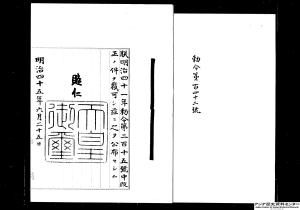 勅令第百四十二號
朕明治四十一年勅令第二百十五號中改
正ノ件ヲ裁可シ茲ニ之ヲ公布セシム
睦仁
天皇
御璽
明治四十五年六月二十五日
アジア歴史資料センター